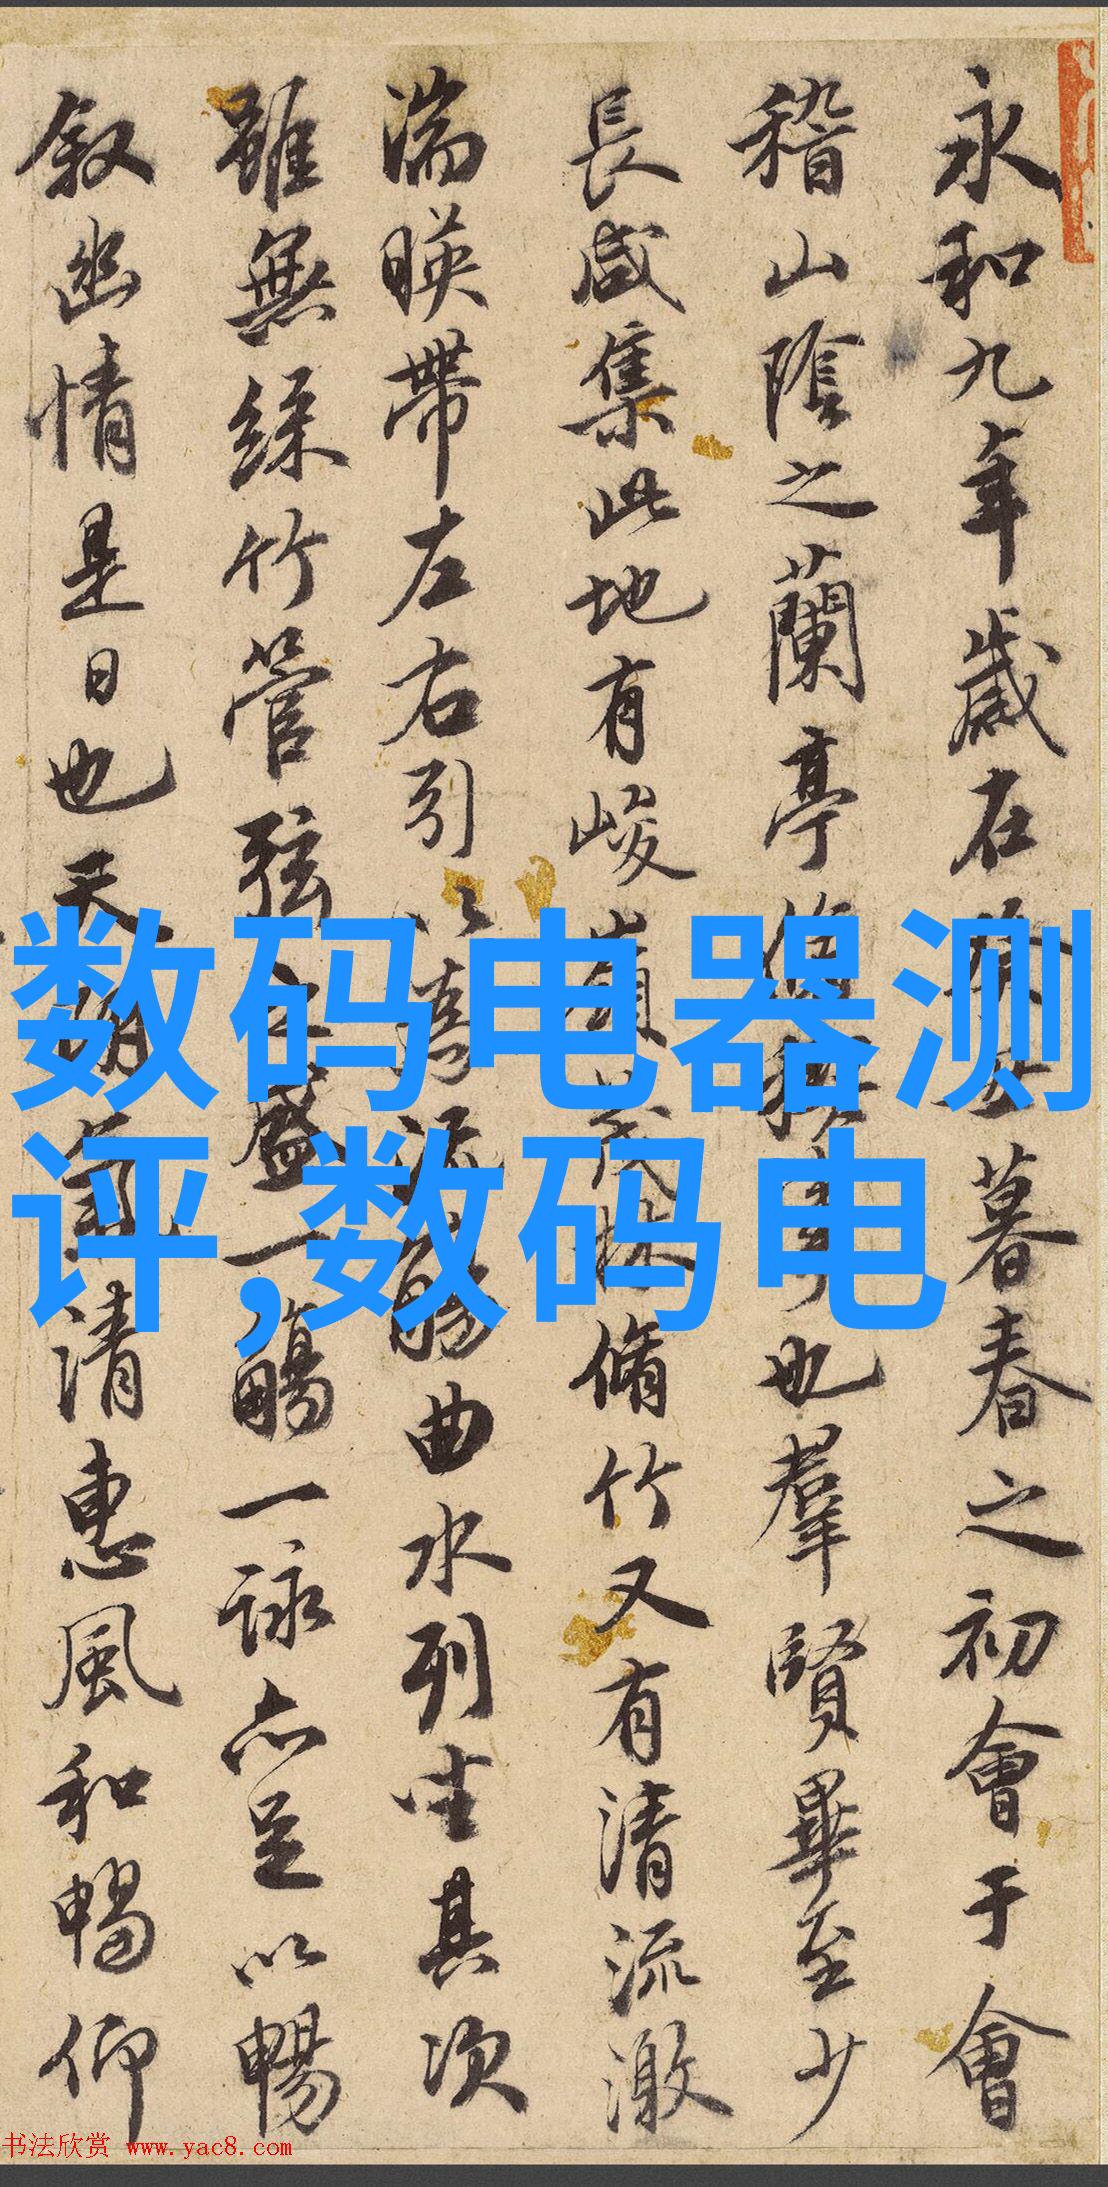 永和九年歲在癸丑暮春之初會于會
稽山陰之蘭亭脩稧事也羣賢畢至少
長咸集此地有峻嶺茂林脩竹又有清流激
湍暎帶左右引以為流觴曲水列坐其次
雖無絲竹管弦之盛一觴一詠亦足以暢
叙幽情是日也天朗氣清惠風和暢仰
数码电器测
评,数码电
书法欣赏 www.yac8.com